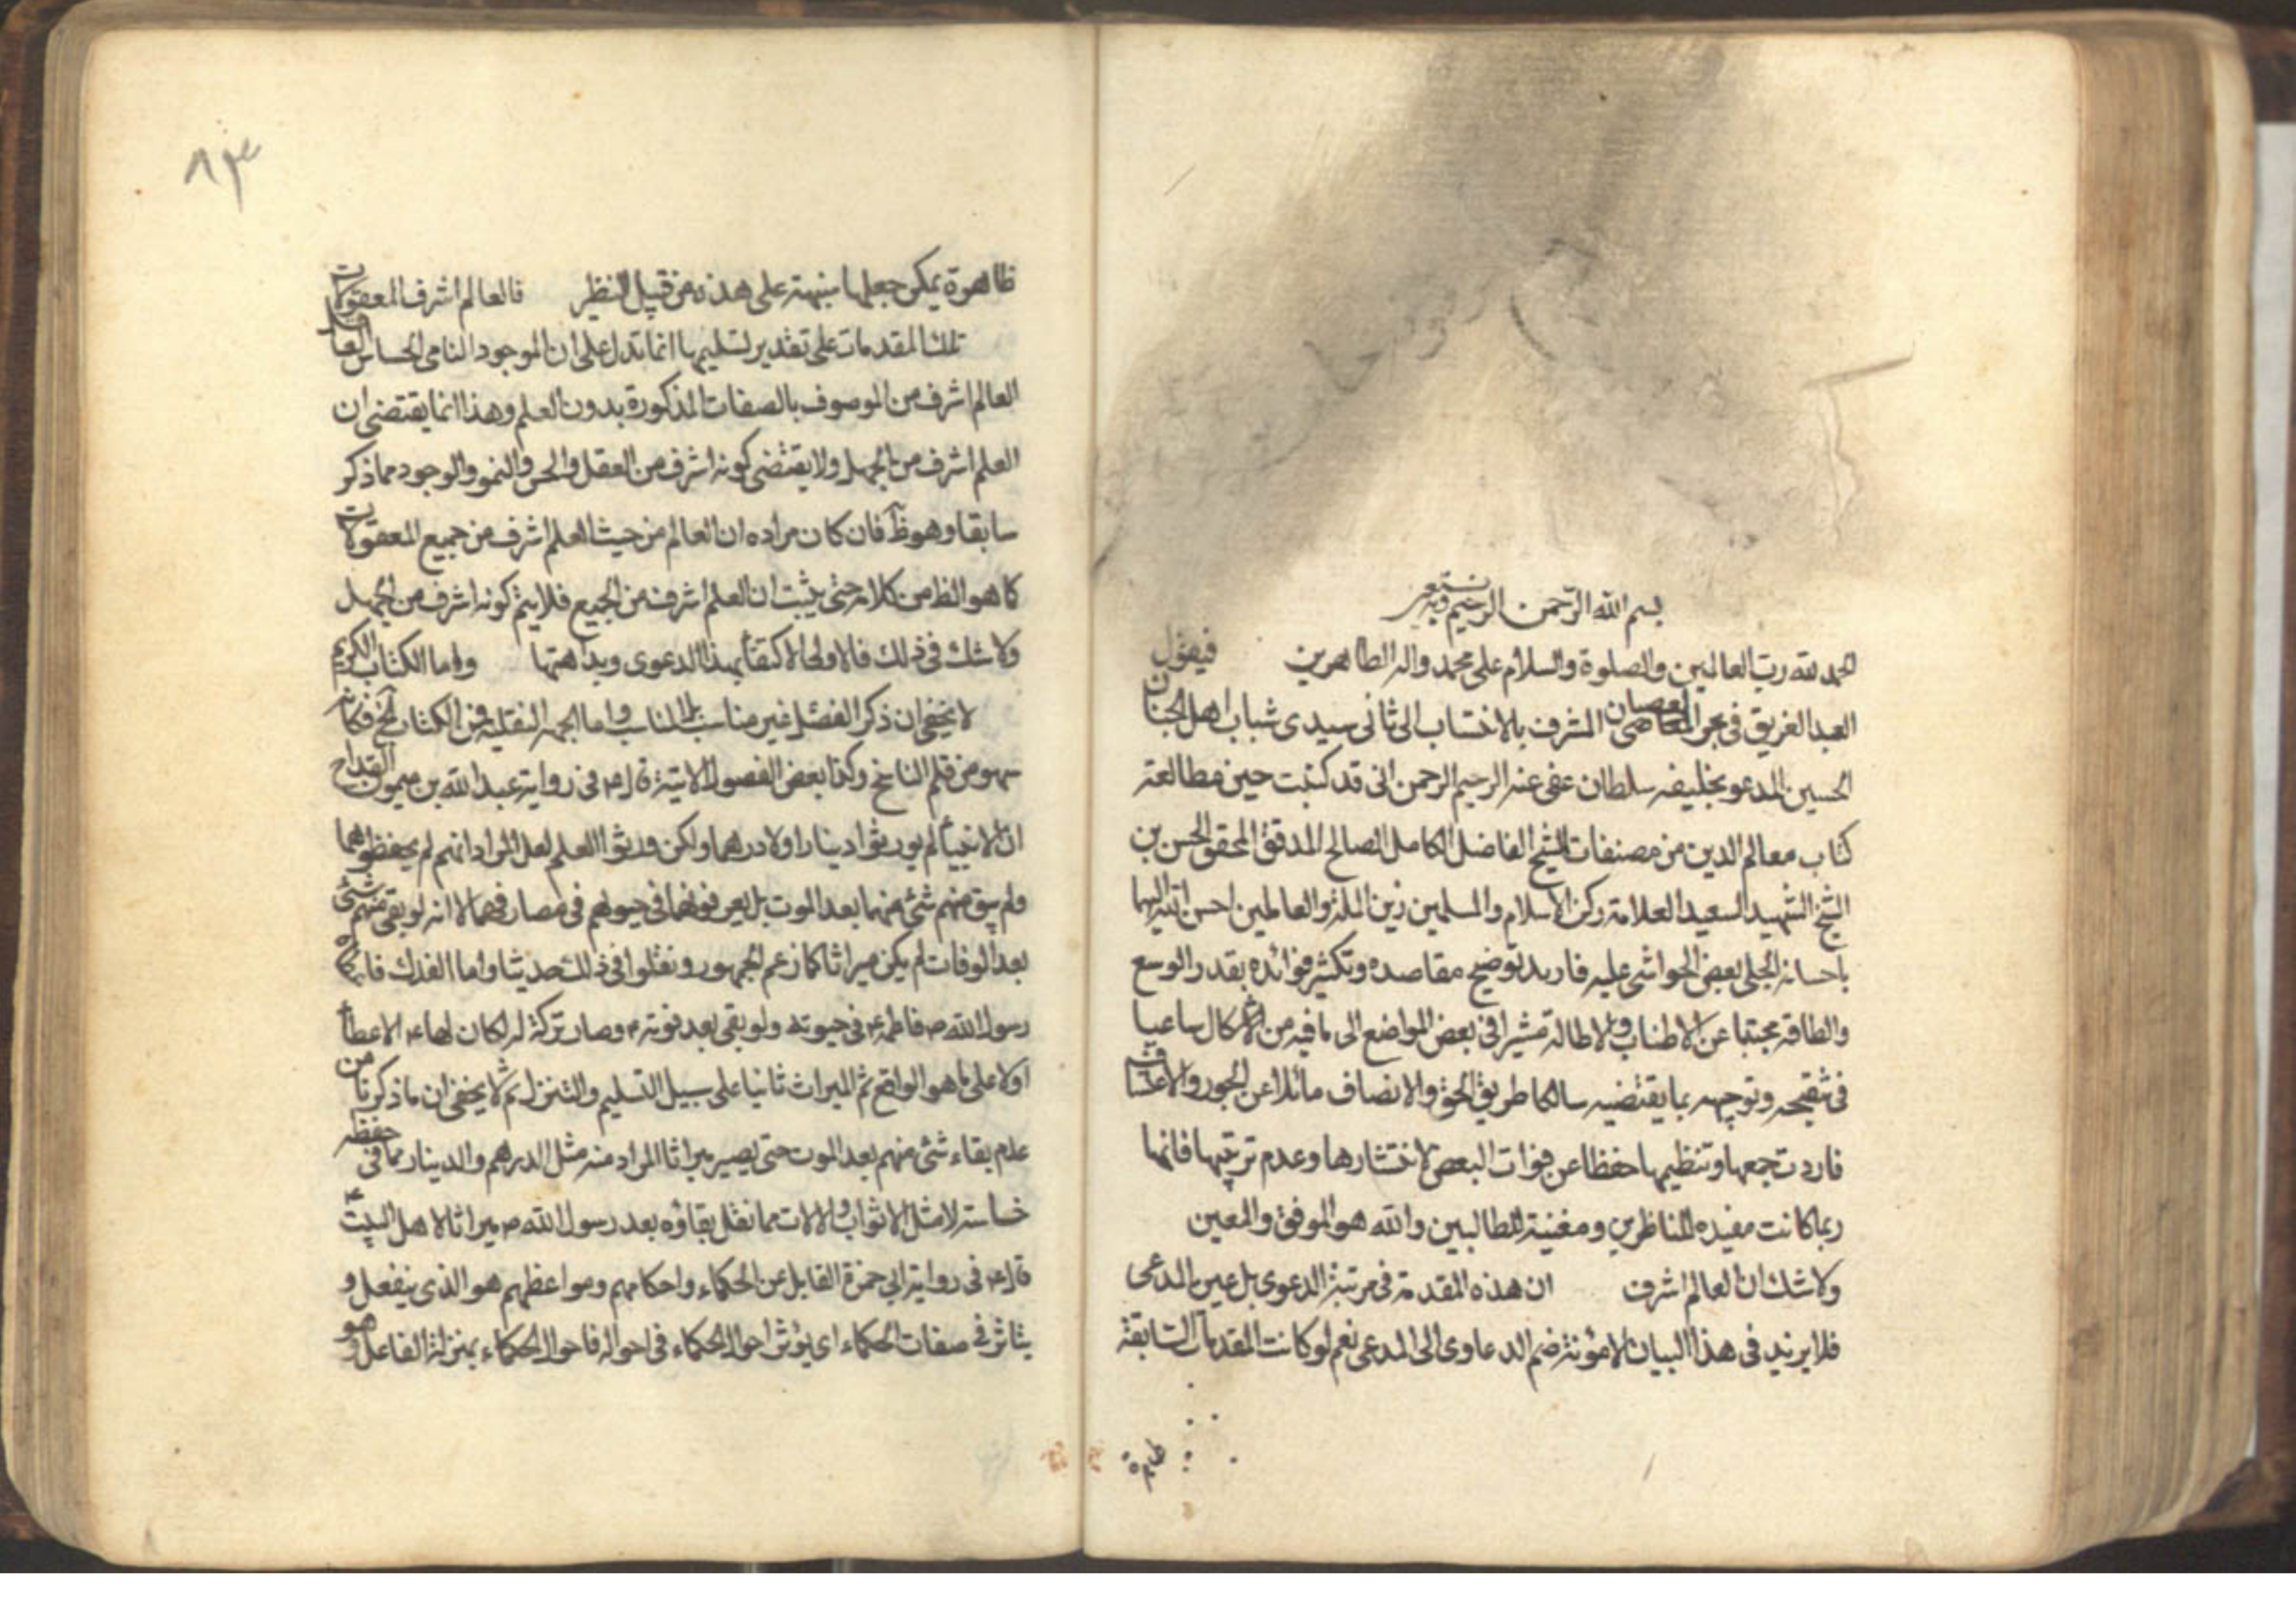 بسم الله الرحمن الرحيم وبه نستعين
الحمد لله رب العالمين والصلوة والسلام على محمد واله الطاهرين فيقول
العبد الغريق في بحر العصيان المشرف بالانتساب الى ثاني سيدي شباب اهل الجنان
الحسين المدعو بخليفه سلطان عفى عنه الرحيم الرحمن اني قد كتبت حين مطالعة
كتاب معالم الدين من مصنفات الشيخ الفاضل الكامل الصالح المدقق المحقق الحسن بن
الشيخ الشهيد السعيد العلامة ركن الاسلام والمسلمين زين الملة والعالمين احسن الله اليهما
باحسانه الجلي بعض الحواشي عليه فاريد توضيح مقاصده وتكثير فوائده بقدر الوسع
والطاقة مجتنبا عن الاطناب والاطالة مشيرا في بعض المواضع الى ما فيه من الاشكال ساعيا
في تنقيحه وتوجيهه بما يقتضيه سالكا طريق الحق والانصاف مائلا عن الجور والاعتساف
فاردت جمعها وتنظيمها حفظا عن فوات البعض لانتشارها وعدم ترتيبها فانها
ربما كانت مفيده للناظرين ومغنية للطالبين والله هو الموفق والمعين
ولا شك ان العالم اشرف ان هذه المقدمة في مرتبة الدعوى بل عين المدعى
فلا يزيد في هذا البيان الا مؤنة ضم الدعاوى الى المدعى نعم لو كانت المقدمات السابقة
ظاهرة
٨٣
ظاهرة يمكن جعلها منبهة على هذه من قبيل النظير فالعالم اشرف المعقولات
تلك المقدمات على تقدير تسليمها انما تدل على ان الموجود النامي الحساس العاقل
العالم اشرف من الموصوف بالصفات المذكورة بدون العلم وهذا انما يقتضى ان
العلم اشرف من الجهل ولا يقتضى كونه اشرف من العقل والحس والنمو والوجود مما ذكر
سابقا وهو ظ فان كان مراده ان العالم من حيث العلم اشرف من جميع المعقولات
كما هو الظ من كلامه حتى يثبت ان العلم اشرف من الجميع فلا يتم كونه اشرف من الجهل
ولا شك في ذلك فالاولى الاكتفاء بهذا الدعوى وبداهتها واما الكتاب الكريم
لا يخفى ان ذكر الفصل غير مناسب المناسب واما الجهة النقلية فمن الكتاب الخ فكانه
سهو من قلم الناسخ وكذا بعض الفصول الاتية قال ع في رواية عبد الله بن ميمون القداح
ان الانبياء لم يورثوا دينارا ولا درهما ولكن ورثوا العلم لعل المراد انهم لم يحفظوهما
ولم يبق منهم شئ منهما بعد الموت بل يصرفونهما في حيوتهم في مصارفهما لا انه لو بقى منهم شئ
بعد الوفات لم يكن ميراثا كما زعم الجمهور ونقلوا في ذلك حديثا واما الفدك
رسول الله ص فاطمة ع في حيوته ولو بقى بعد فوته ص وصار تركة له لكان لها ع الاعطاء
اولا على ما هو الواقع ثم الميراث ثانيا على سبيل التسليم والتنزل ثم لا يخفى ان ما ذكرنا من
عدم بقاء شئ منهم بعد الموت حتى يصير ميراثا المراد منه مثل الدرهم والدينار مما في حفظه
خساسة لا مثل الاثواب والالات مما نقل بقاؤه بعد رسول الله ص ميراثا لاهل البيت ع
قال ع في رواية ابي حمزة القابل عن الحكماء واحكامهم ومواعظهم هو الذي ينفعل و
يتاثر في صفات الحكماء اي يؤثر احوال الحكماء في احواله فاحوال الحكماء بمنزلة الفاعل وهو